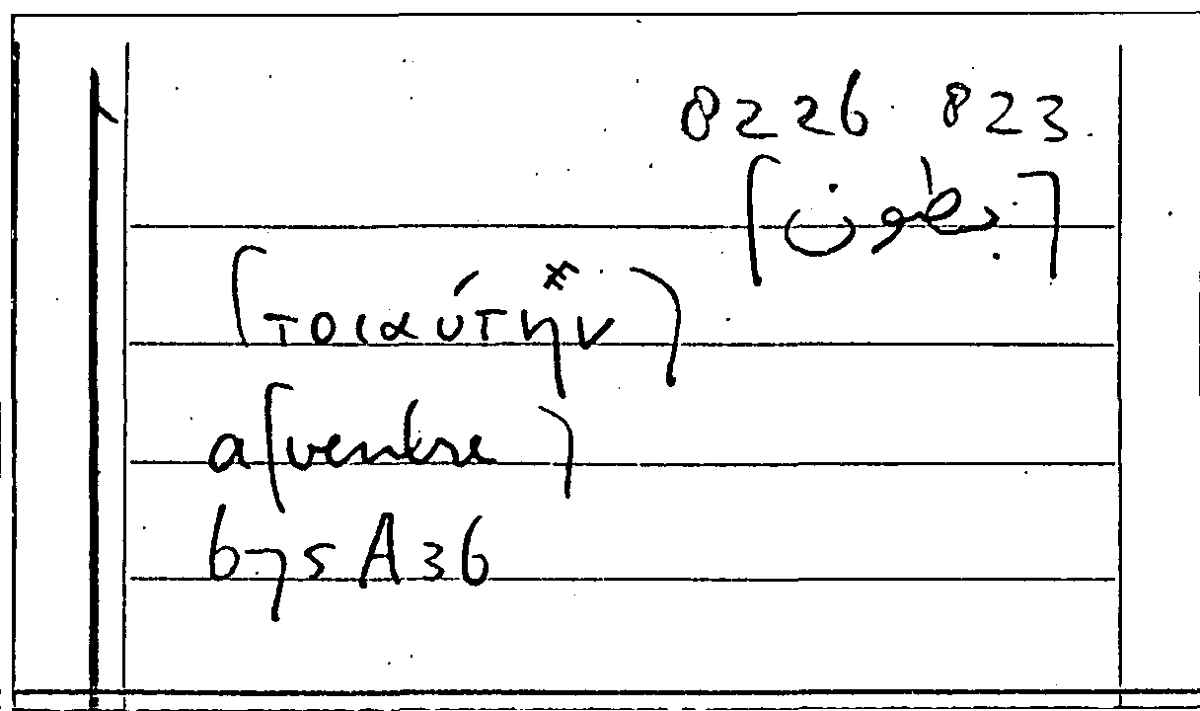 8226 823
[بطون]
(τοιαύτην*)
a(ventre)
675 A 36